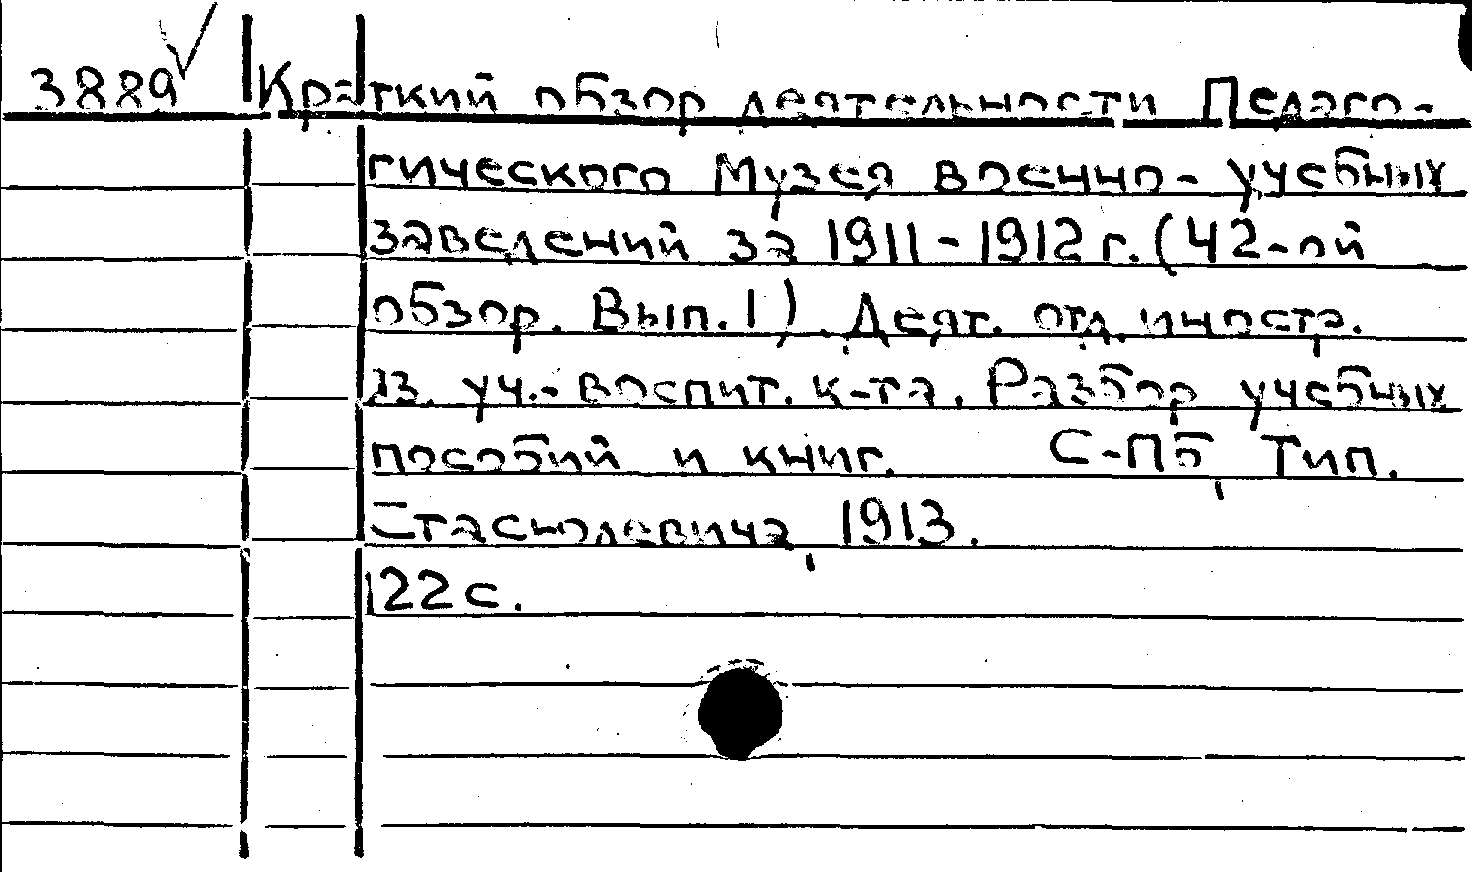 3889 Краткий обзор деятельности Педаго-
гического Музея военно-учебных
заведений за 1911-1912 г. (42-ой
обзор. Вып. 1). Деят. отд. иностр.
яз. уч.-воспит. к-та. Разбор учебных
пособий и книг. С-Пб, Тип.
Стасюлевича, 1913.
122 с.